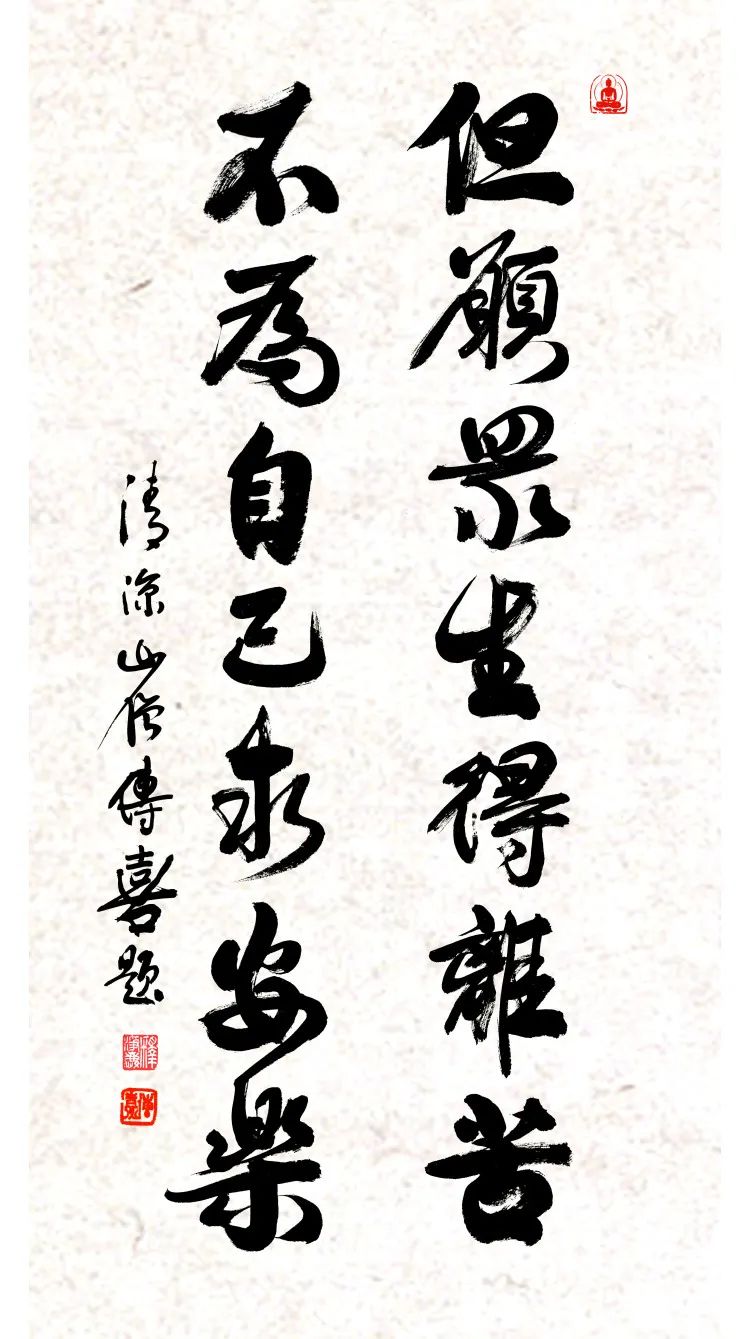 但願眾生得離苦
不為自己求安樂
清涼山僧傳喜題
傳喜